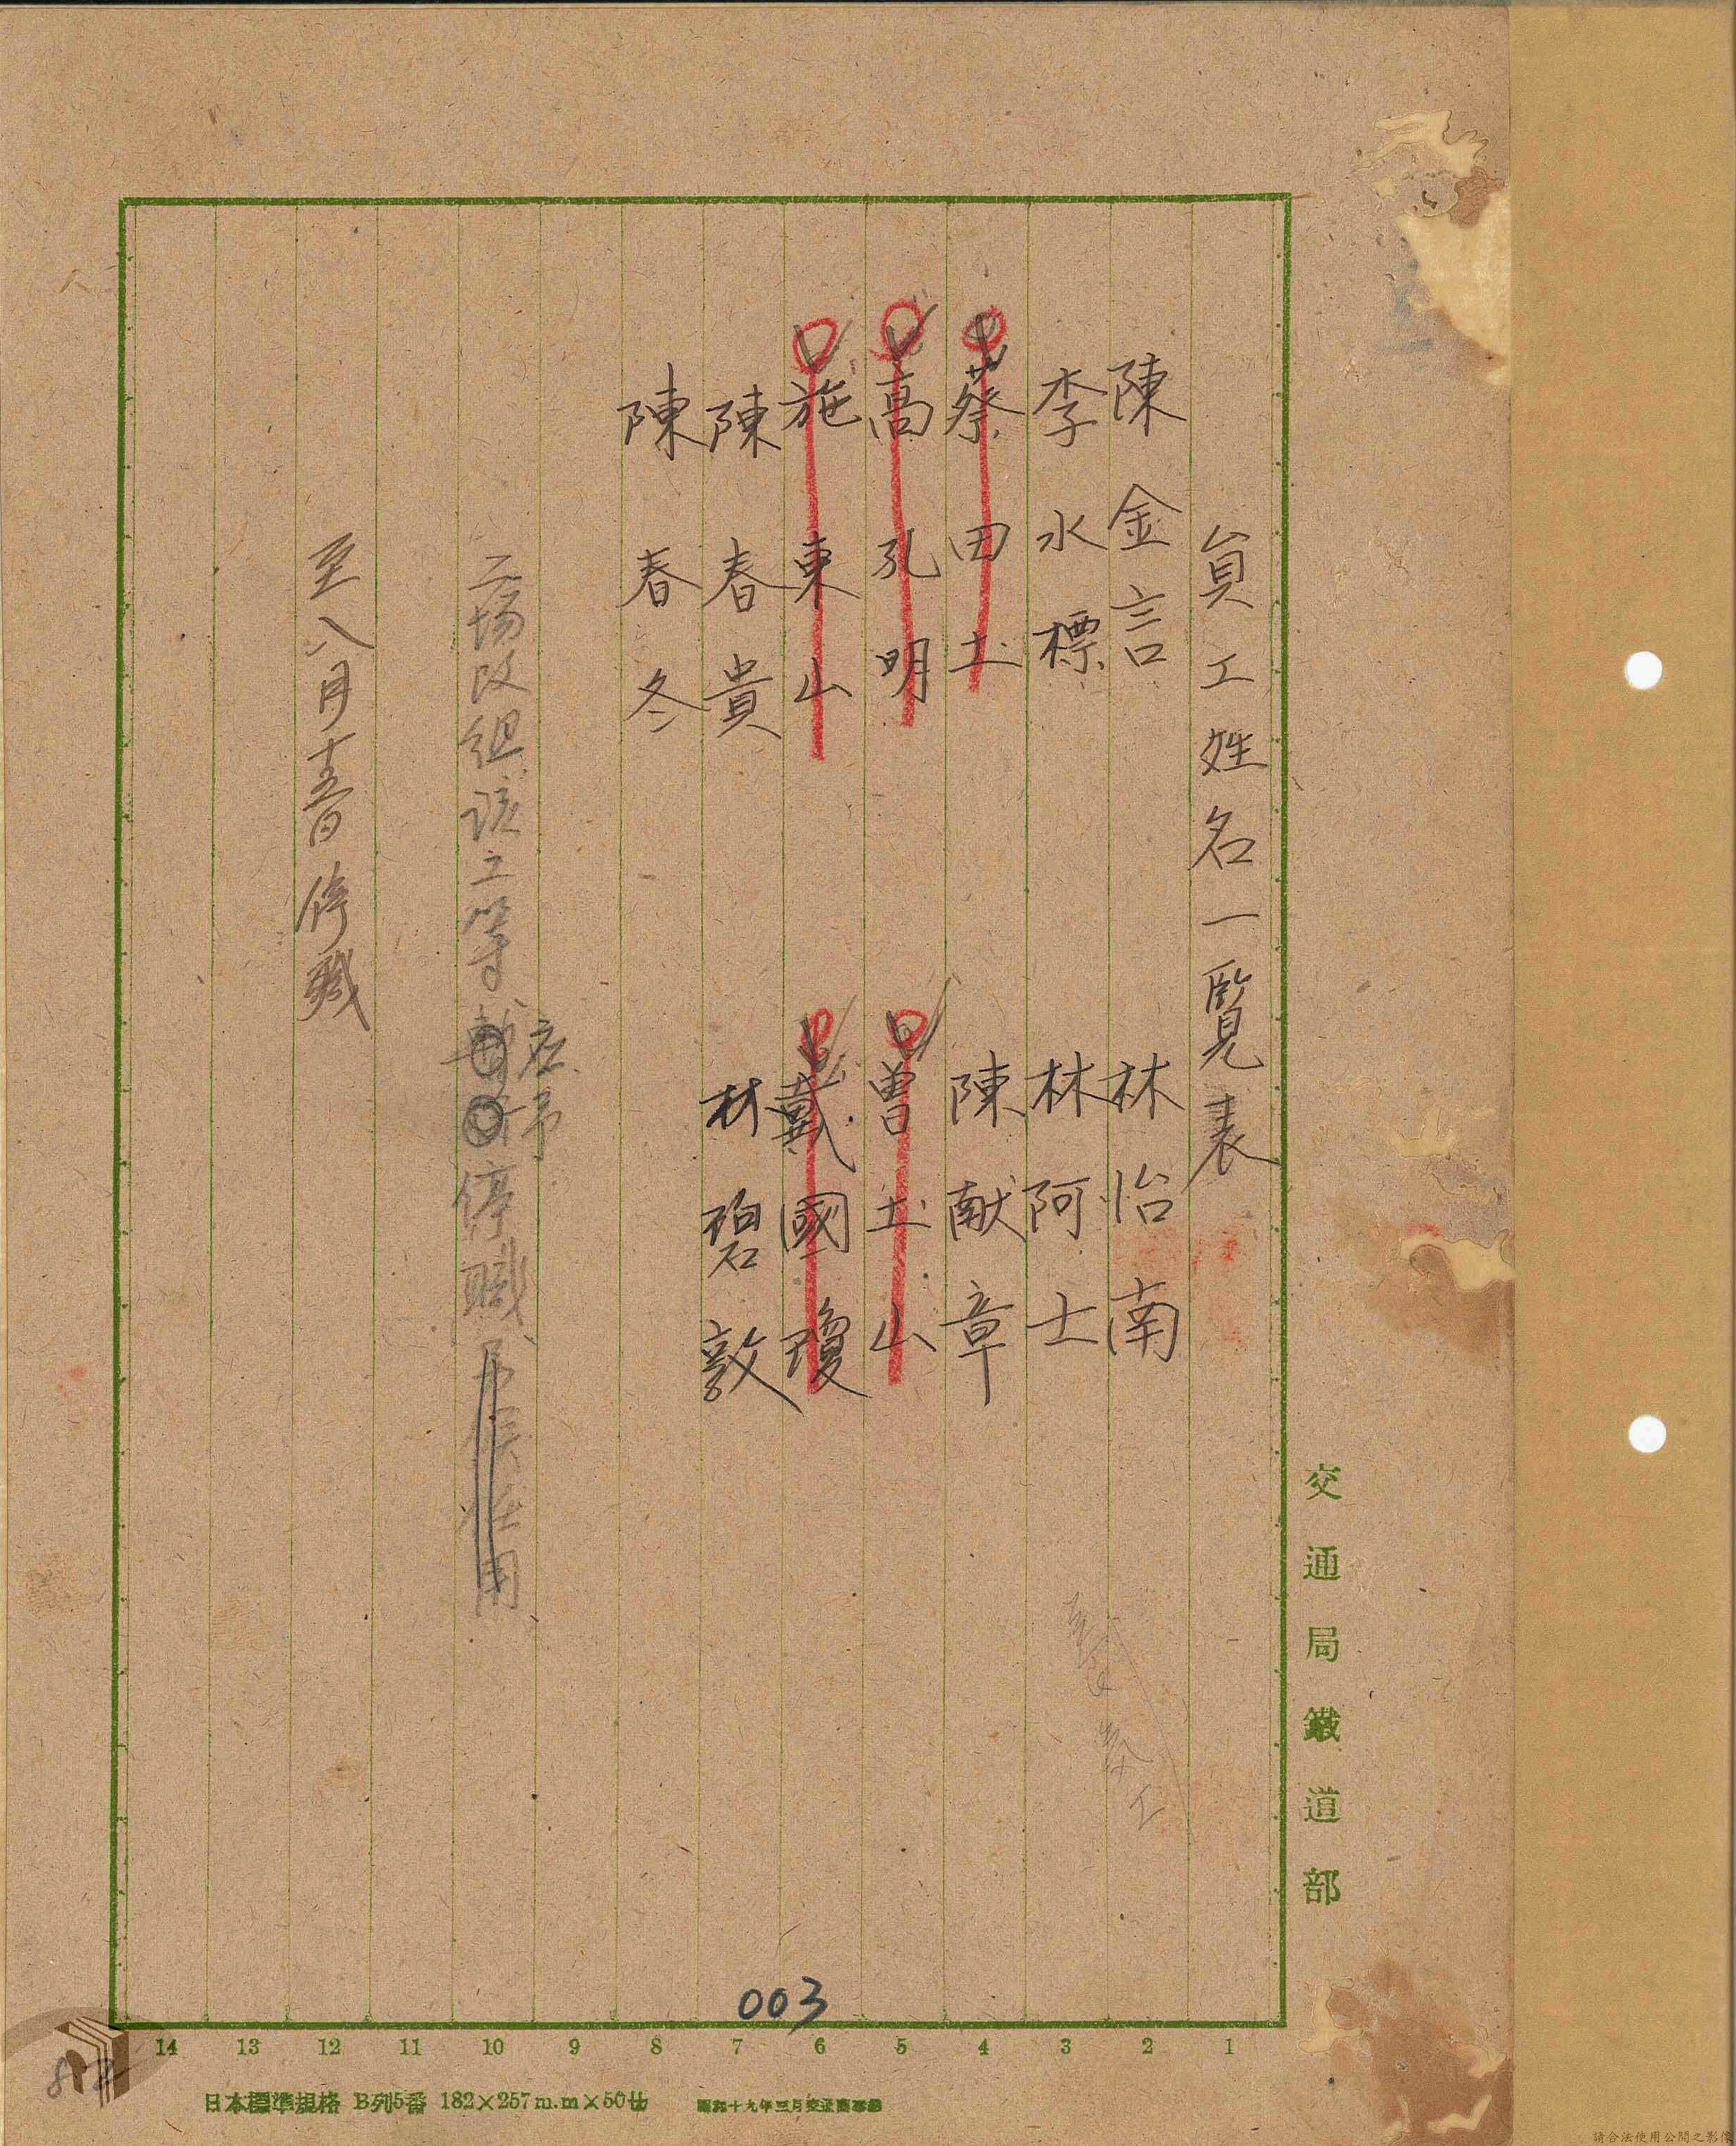 員工姓名一覧表
陳金言
林怡南
李水標
林阿士
蔡田土
陳献章
高孔明
曽土山
施東山
戴國瓊
陳春貴
林碧敦
陳春冬
工場改組該工等
应予
停職
用
至八月十五日停職
交通局鐵道部
003
14 13 12 11 10 9 8 7 6 5 4 3 2 1
日本標準規格 B列5番 182×257m.m×50廿
請合法使用公開之影像